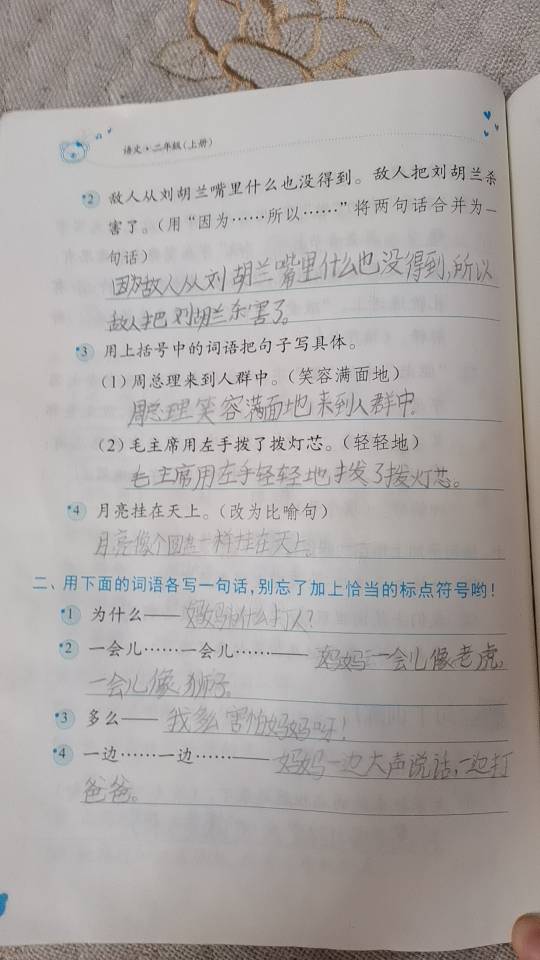 语文·二年级(上册)
2 敌人从刘胡兰嘴里什么也没得到。敌人把刘胡兰杀
害了。(用“因为……所以……”将两句话合并为一
句话)
因为敌人从刘胡兰嘴里什么也没得到,所以
敌人把刘胡兰杀害了。
3 用上括号中的词语把句子写具体。
(1)周总理来到人群中。(笑容满面地)
周总理笑容满面地来到人群中。
(2)毛主席用左手拨了拨灯芯。(轻轻地)
毛主席用左手轻轻地拨了拨灯芯。
4 月亮挂在天上。(改为比喻句)
月亮像个圆盘一样挂在天上。
二、用下面的词语各写一句话,别忘了加上恰当的标点符号哟!
1 为什么——妈妈为什么打人?
2 一会儿……一会儿……——妈妈一会儿像老虎,
一会儿像狮子。
3 多么——我多么害怕妈妈呀!
4 一边……一边……——妈妈一边大声说话,一边打
爸爸。